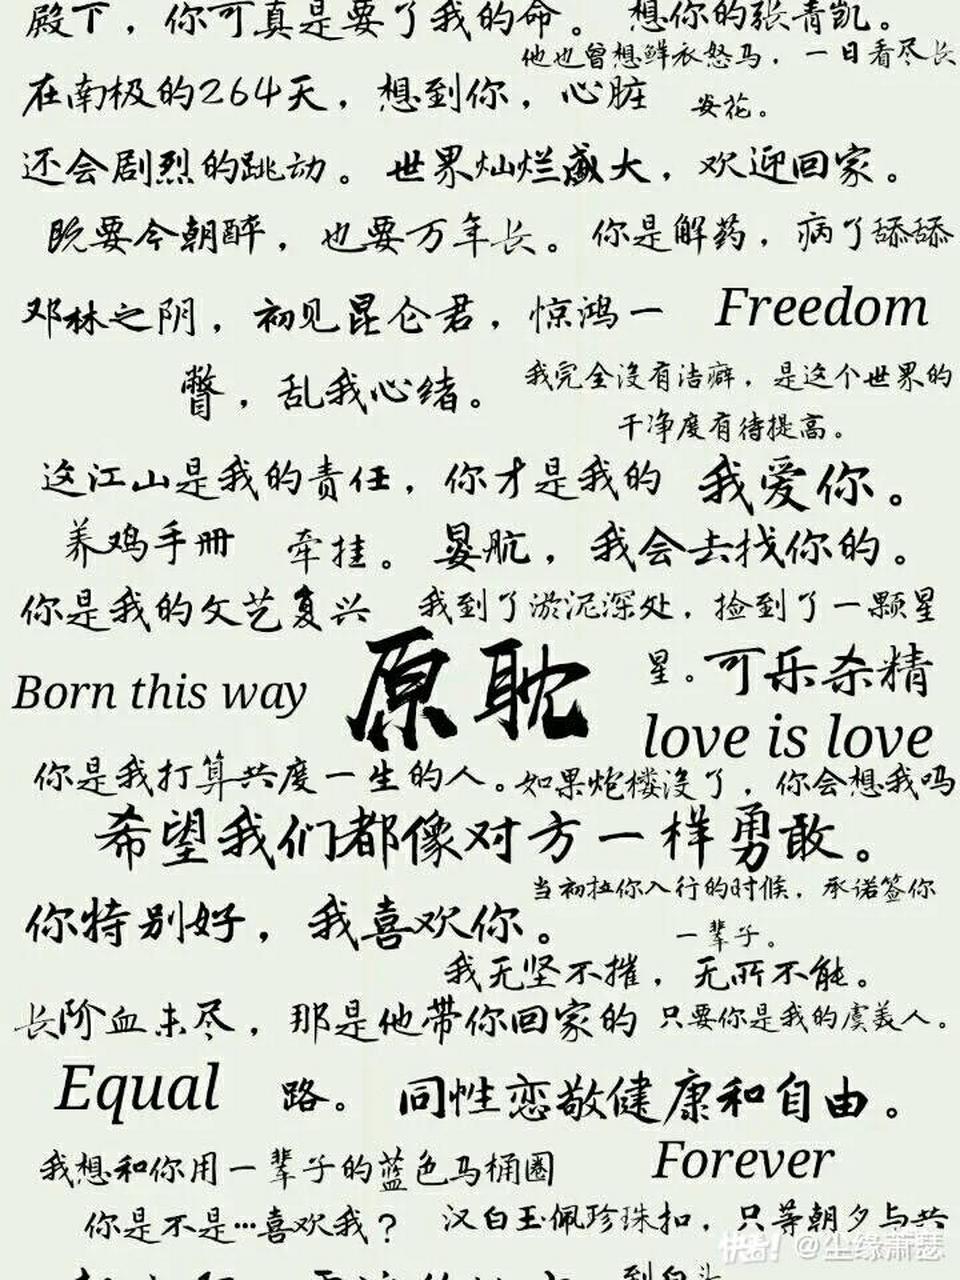 殿下，你可真是要了我的命。 想你的张青凯。
他也曾想鲜衣怒马，一日看尽长
在南极的264天，想到你，心脏 安花。
还会剧烈的跳动。 世界灿烂盛大，欢迎回家。
既要今朝醉，也要万年长。 你是解药，病了舔舔
邓林之阴，初见昆仑君，惊鸿一 Freedom
瞥，乱我心绪。 我完全没有洁癖，是这个世界的
干净度有待提高。
这江山是我的责任，你才是我的 我爱你。
养鸡手册 牵挂。 晏航，我会去找你的。
你是我的文艺复兴 我到了淤泥深处，捡到了一颗星
Born this way 原耽 星。可乐杀精
love is love
你是我打算共度一生的人。如果炮楼没了，你会想我吗
希望我们都像对方一样勇敢。
当初拉你入行的时候，承诺签你
你特别好，我喜欢你。 一辈子。
我无坚不摧，无所不能。
长阶血未尽，那是他带你回家的 只要你是我的虞美人。
Equal 路。 同性恋敬健康和自由。
我想和你用一辈子的蓝色马桶圈 Forever
你是不是…喜欢我？ 汉白玉佩珍珠扣，只等朝夕与共
快看！@尘缘萧瑟
到白头